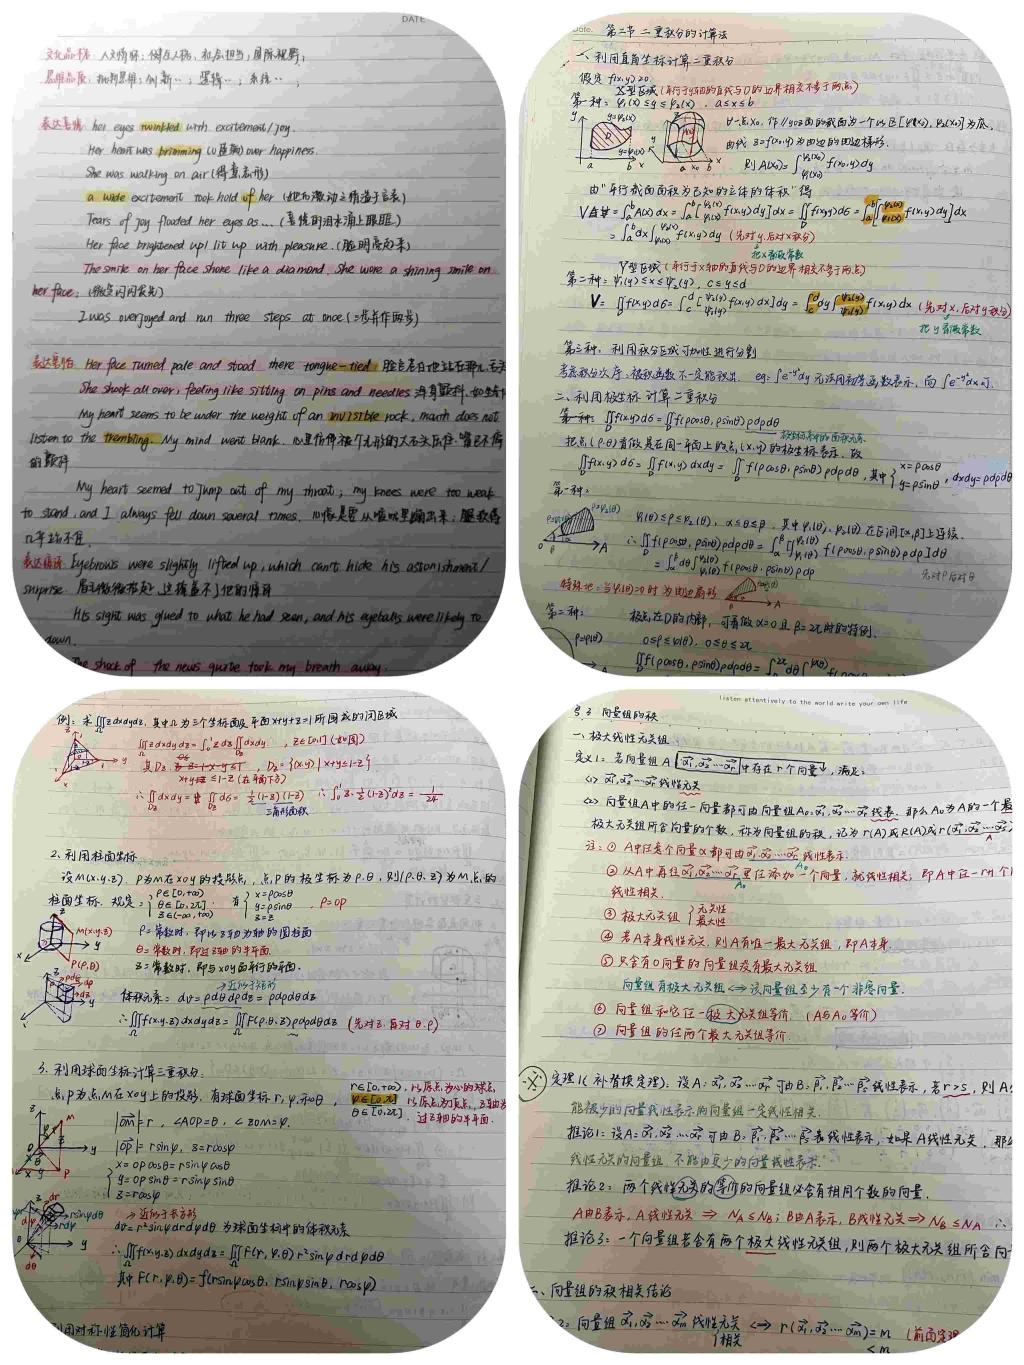 DATE
文化品格：人文情怀；健全人格；社会担当；国际视野；
思维品质：批判思维；创新‥；逻辑‥；系统‥；
表达喜悦 her eyes twinkled with excitement/joy.
Her heart was brimming over happiness.
She was walking on air (得意忘形)
a wide excitement took hold of her
Tears of joy flooded her eyes as... (喜悦的泪水涌上眼眶)
Her face brightened up/lit up with pleasure. (脸明亮起来)
The smile on her face shone like a diamond, She wore a shining smile on
her face;
I was overjoyed and run three steps at once (三步并作两步)
Her face turned pale and stood there tongue-tied
She shook all over, feeling like sitting on pins and needles
My heart seems to be under the weight of an invisible rock, mouth does not
listen to the trembling. My mind went blank.
的颤抖
My heart seemed to jump out of my throat; my knees were too weak
to stand, and I always fell down several times.
Eyebrows were slightly lifted up, which can't hide his astonishment/
surprise
His sight was glued to what he had seen, and his eyeballs were likely to
down.
The shock of the news quite took my breath away.
Date.
第二节 二重积分的计算法
一、利用直角坐标计算二重积分
假定 f(x,y)≥0.
X型区域 (平行于y轴的直线与D的边界相交不多于两点)
第一种：φ₁(x)≤y≤φ₂(x)，a≤x≤b
则 A(x₀)=∫_{φ₁(x₀)}^{φ₂(x₀)} f(x₀,y)dy
由"平行截面面积为已知的立体的体积"得
=∫_a^b dx∫_{φ₁(x)}^{φ₂(x)} f(x,y)dy (先对y,后对x积分)
把x看做常数
Y型区域 (平行于x轴的直线与D的边界相交不多于两点)
第二种：ψ₁(y)≤x≤ψ₂(y)，c≤y≤d
V=∬_D f(x,y)dσ=∫_c^d[∫_{ψ₁(y)}^{ψ₂(y)} f(x,y)dx]dy=∫_c^d dy∫_{ψ₁(y)}^{ψ₂(y)} f(x,y)dx (先对x,后对y积分)
把y看做常数
第三种：利用积分区域可加性进行分割
二、利用极坐标计算二重积分
∬_D f(x,y)dσ=∬_D f(ρcosθ,ρsinθ)ρdρdθ
极坐标系中的面积元素
把点(ρ,θ)看做是在同一平面上的点(x,y)的极坐标表示，故
∬_D f(x,y)dσ=∬_D f(x,y)dxdy=∬_D f(ρcosθ,ρsinθ)ρdρdθ，其中{x=ρcosθ y=ρsinθ，dxdy=ρdρdθ
第一种：
φ₁(θ)≤ρ≤φ₂(θ)，α≤θ≤β，其中φ₁(θ)，φ₂(θ)在区间[α,β]上连续.
∴∬_D f(ρcosθ,ρsinθ)ρdρdθ=∫_α^β[∫_{φ₁(θ)}^{φ₂(θ)} f(ρcosθ,ρsinθ)ρdρ]dθ
=∫_α^β dθ∫_{φ₁(θ)}^{φ₂(θ)} f(ρcosθ,ρsinθ)ρdρ
先对ρ后对θ
特殊地：当φ₁(θ)=0时为曲边扇形
第二种：
极点在D的内部，可看做α=0且β=2π时的特例.
0≤ρ≤φ(θ)，0≤θ≤2π
例：求∭_Ω zdxdydz，其中Ω为三个坐标面及平面x+y+z=1所围成的闭区域
∭_Ω zdxdydz=∫_0^1 zdz∬_{Dz}dxdy，z∈[0,1](如图)
三角形面积
2. 利用柱面坐标
设M(x,y,z)，P为M在xoy的投影点，点P的极坐标为ρ,θ，则(ρ,θ,z)为M点的
柱面坐标. 规定：{ρ∈[0,+∞) θ∈[0,2π] z∈(-∞,+∞) 有{x=ρcosθ y=ρsinθ z=z ，ρ=OP
ρ=常数时，即以z轴为轴的圆柱面
θ=常数时，即过z轴的半平面
z=常数时，即与xoy面平行的平面.
→近似于矩形
体积元素：dv=ρdθdρdz=ρdρdθdz
∴∭_Ω f(x,y,z)dxdydz=∭_Ω F(ρ,θ,z)ρdρdθdz (先对z,再对θ,ρ)
3. 利用球面坐标计算三重积分：
点P为点M在xoy上的投影. 有球面坐标r,φ,和θ，
r∈[0,+∞)，以原点为心的球面，
φ∈[0,π]
θ∈[0,2π]. 过z轴的半平面.
|OM|=r，∠AOP=θ，∠ZOM=φ.
|OP|=rsinφ，z=rcosφ
{x=OPcosθ=rsinφcosθ
y=OPsinθ=rsinφsinθ
z=rcosφ
→近似于长方形
dv=r²sinφdrdφdθ 为球面坐标中的体积元素
∴∭_Ω f(x,y,z)dxdydz=∭_Ω F(r,φ,θ)r²sinφdrdφdθ
其中F(r,φ,θ)=f(rsinφcosθ，rsinφsinθ，rcosφ)
利用对称性简化计算
listen attentively to the world write your own life
§3 向量组的秩
一、极大线性无关组
定义1：若向量组A [α₁,α₂…αr] 中存在r个向量，满足：
<1> α₁,α₂…αr线性无关
<2> 向量组A中的任一向量都可由向量组A₀:α₁,α₂…αr线表. 那么A₀为A的一个最
极大无关组所含向量的个数，称为向量组的秩，记为r(A)或R(A)或r(α₁,α₂…αs)
注：① A中任意个向量α都可由α₁,α₂…αr线性表示.
② 从A中再往α₁,α₂…αr里任添加一个向量，就线性相关；即A中任r+1个
线性相关.
③ 极大无关组{无关性 最大性
④ 若A本身线性无关，则A有唯一最大无关组，即A本身.
⑤ 只含有0向量的向量组没有最大无关组
向量组有极大无关组⟺该向量组至少有一个非零向量.
⑥ 向量组和它任一极大无关组等价. (A与A₀等价)
⑦ 向量组的任两个最大无关组等价.
※ 定理1(补替换定理)：设A:α₁,α₂…αr可由B:β₁,β₂…βs线性表示，若r>s，则A
能被少的向量线性表示的向量组一定线性相关.
推论1：设A:α₁,α₂…αr可由B:β₁,β₂…βs表线性表示，如果A线性无关，那
线性无关的向量组，不能由更少的向量线性表示.
推论2：两个线性无关的等价的向量组必含有相同个数的向量.
A由B表示，A线性无关⟹N_A≤N_B；B由A表示，B线性无关⟹N_B≤N_A ∴
推论3：一个向量组若含有两个极大线性无关组，则两个极大无关组所含向
二、向量组的秩相关结论
2：向量组α₁,α₂…αm线性无关⟺r(α₁,α₂…αm)=m (前面定理
相关 <m